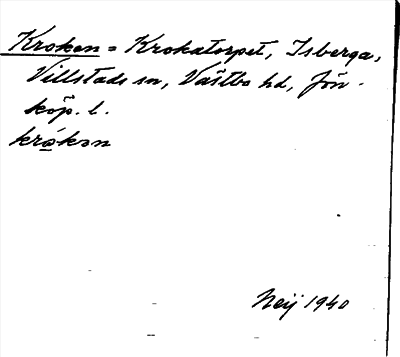 Kroken = Krokatorpet, Isberga,
Villstads sn, Västbo hd, Jön-
köp. l.
krokən
Neij 1940